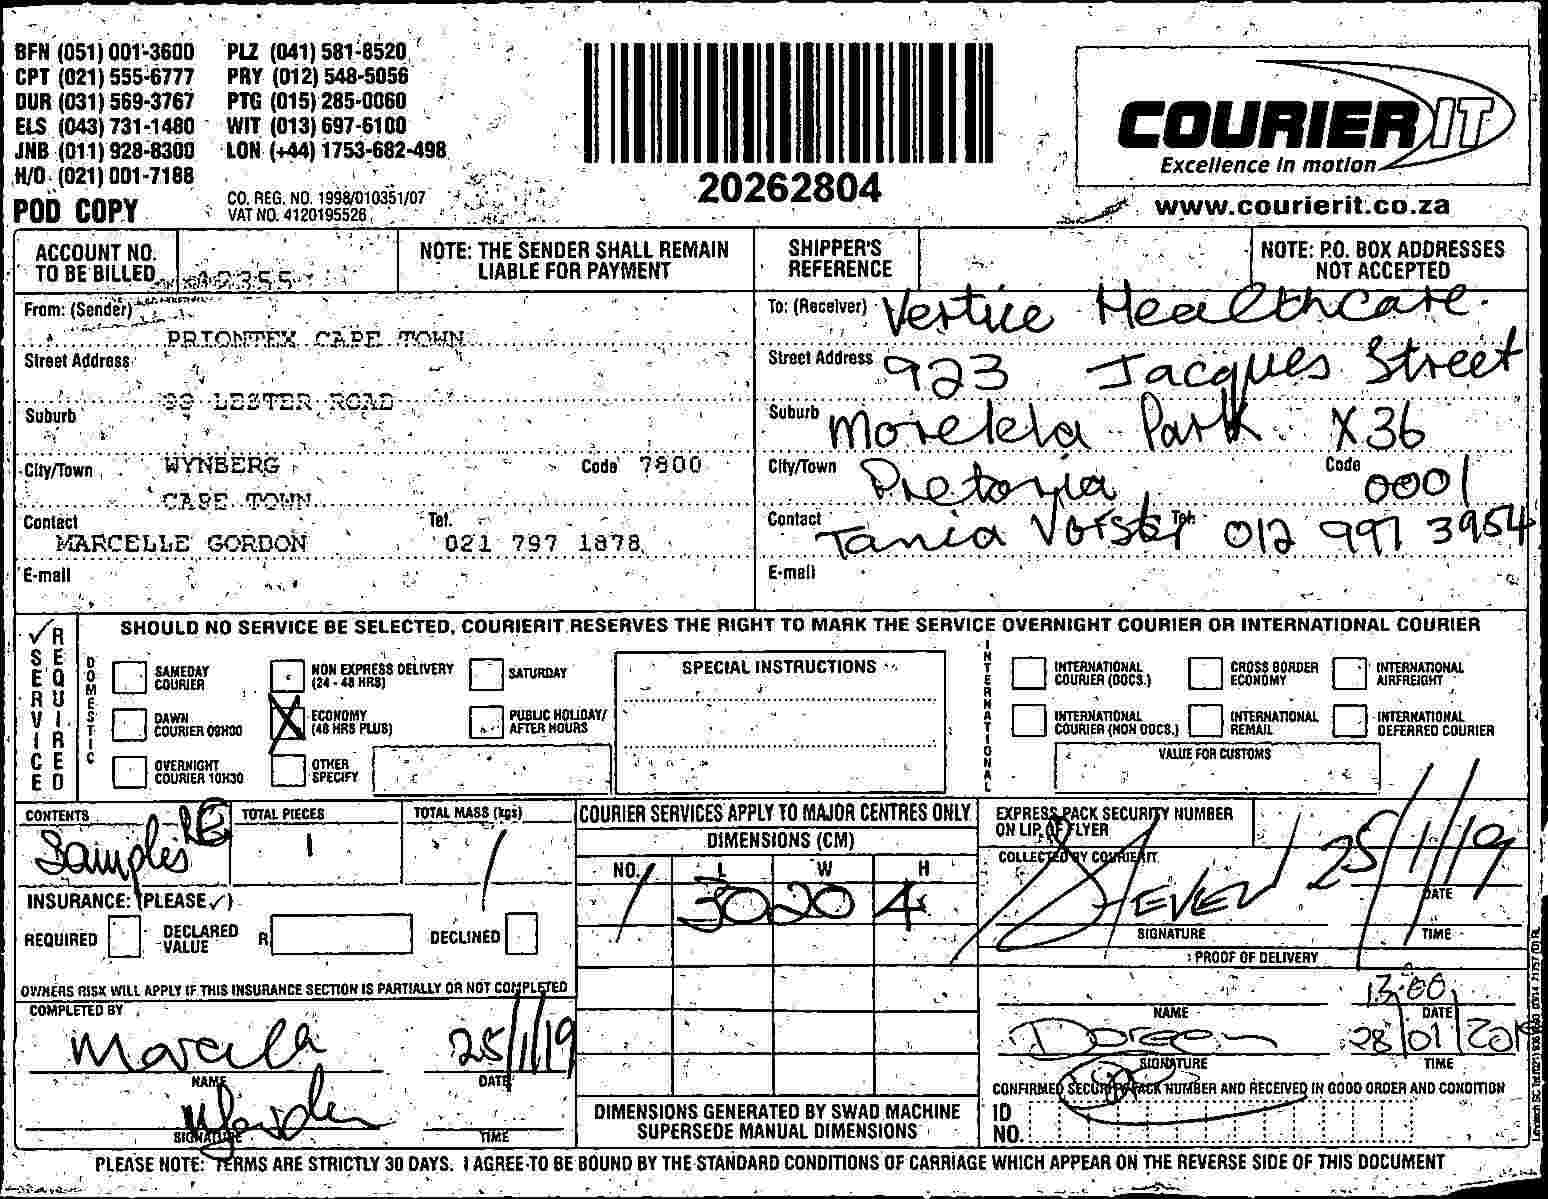 BFN (051) 001-3600 PLZ (041) 581-8520
CPT (021) 555-6777 PRY (012) 548-5056
DUR (031) 569-3767 PTG (015) 285-0060
ELS (043) 731-1480 WIT (013) 697-6100
JNB (011) 928-8300 LON (+44) 1753-682-498
H/O (021) 001-7188
POD COPY
CO. REG. NO. 1998/010351/07
VAT NO. 4120195526
20262804
COURIER IT
Excellence in motion
www.courierit.co.za
ACCOUNT NO.
TO BE BILLED
NOTE: THE SENDER SHALL REMAIN
LIABLE FOR PAYMENT
SHIPPER'S
REFERENCE
NOTE: P.O. BOX ADDRESSES
NOT ACCEPTED
From: (Sender)
PRIONTEX CAPE TOWN
Street Address
99 LESTER ROAD
Suburb
City/Town WYNBERG Code 7800
CAPE TOWN
Contact Tel.
MARCELLE GORDON 021 797 1878
E-mail
To: (Receiver) Vertice Healthcare.
Street Address 923 Jacques Street
Suburb Morelela Park X36
City/Town Pretoria Code 0001
Contact Tania Vorster Tel: 012 997 3954
E-mail
✓ SERVICE REQUIRED
SHOULD NO SERVICE BE SELECTED, COURIERIT RESERVES THE RIGHT TO MARK THE SERVICE OVERNIGHT COURIER OR INTERNATIONAL COURIER
DOMESTIC
SAMEDAY
COURIER
NON EXPRESS DELIVERY
(24 - 48 HRS)
SATURDAY
DAWN
COURIER 09H00
X ECONOMY
(48 HRS PLUS)
PUBLIC HOLIDAY/
AFTER HOURS
OVERNIGHT
COURIER 10H30
OTHER
SPECIFY
SPECIAL INSTRUCTIONS
INTERNATIONAL
INTERNATIONAL
COURIER (DOCS.)
CROSS BORDER
ECONOMY
INTERNATIONAL
AIRFREIGHT
INTERNATIONAL
COURIER (NON DOCS.)
INTERNATIONAL
REMAIL
INTERNATIONAL
DEFERRED COURIER
VALUE FOR CUSTOMS
CONTENTS
Samples
TOTAL PIECES
1
TOTAL MASS (kgs)
1
INSURANCE: (PLEASE ✓)
REQUIRED
DECLARED
VALUE
R
DECLINED
OWNERS RISK WILL APPLY IF THIS INSURANCE SECTION IS PARTIALLY OR NOT COMPLETED
COMPLETED BY
Marcella 25/1/19
NAME DATE
SIGNATURE TIME
COURIER SERVICES APPLY TO MAJOR CENTRES ONLY
DIMENSIONS (CM)
NO. L W H
1 30 20 4
DIMENSIONS GENERATED BY SWAD MACHINE
SUPERSEDE MANUAL DIMENSIONS
EXPRESS PACK SECURITY NUMBER
ON LIP OF FLYER
COLLECTED BY COURIERIT
STEVEN 25/1/19
DATE
SIGNATURE TIME
PROOF OF DELIVERY
13:00
NAME DATE
Doreen 28/01/2019
SIGNATURE TIME
CONFIRMED SECURITY PACK NUMBER AND RECEIVED IN GOOD ORDER AND CONDITION
ID
NO.
PLEASE NOTE: TERMS ARE STRICTLY 30 DAYS. I AGREE TO BE BOUND BY THE STANDARD CONDITIONS OF CARRIAGE WHICH APPEAR ON THE REVERSE SIDE OF THIS DOCUMENT